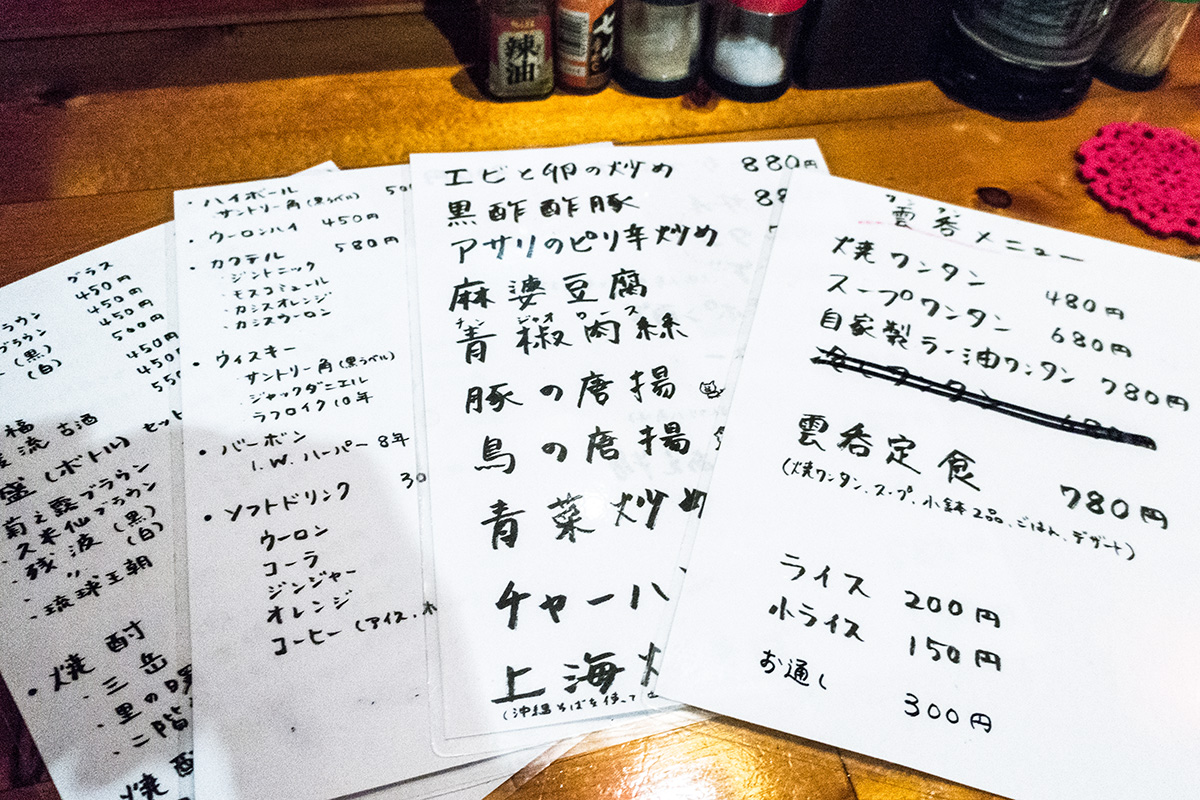 辣油
グラス
450円
450円
450円
500円
450円
450
550
ラウン
ブラウン
(黒)
(白)
福
流 古酒
盛 (ボトル) セット
菊之露ブラウン
・久米仙ブラウン
・残波 (黒)
〃 (白)
・琉球王朝
・焼酎
・三岳
・里の曙
・二階
焼酎
・ハイボール
サントリー角 (黒ラベル)
・ウーロンハイ 450円
・カクテル 580円
・ジントニック
・モスコミュール
・カシスオレンジ
・カシスウーロン
・ウィスキー
・サントリー角 (黒ラベル)
・ジャックダニエル
・ラフロイク10年
・バーボン
I.W.ハーパー 8年
・ソフトドリンク
ウーロン
コーラ
ジンジャー
オレンジ
コーヒー (アイス、ホ
エビと卵の炒め 880円
黒酢酢豚
アサリのピリ辛炒め
麻婆豆腐
チンジャオロース
青椒肉絲
豚の唐揚
鳥の唐揚
青菜炒め
チャーハ
上海
(沖縄そばを使って
ワンタン
雲呑メニュー
焼ワンタン 480円
スープワンタン 680円
自家製ラー油ワンタン 780円
雲呑定食 780円
(焼ワンタン、スープ、小鉢2品、ごはん、デザート)
ライス 200円
小ライス 150円
お通し 300円